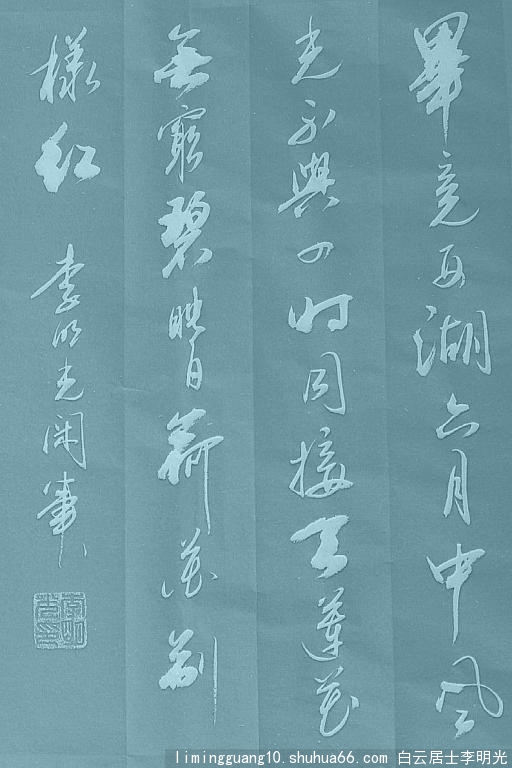 畢竟西湖六月中風
光不與四时同接天蓮葉
無窮碧映日荷花别
樣红 李明光閑筆
limingguang10.shuhua66.com 白云居士李明光